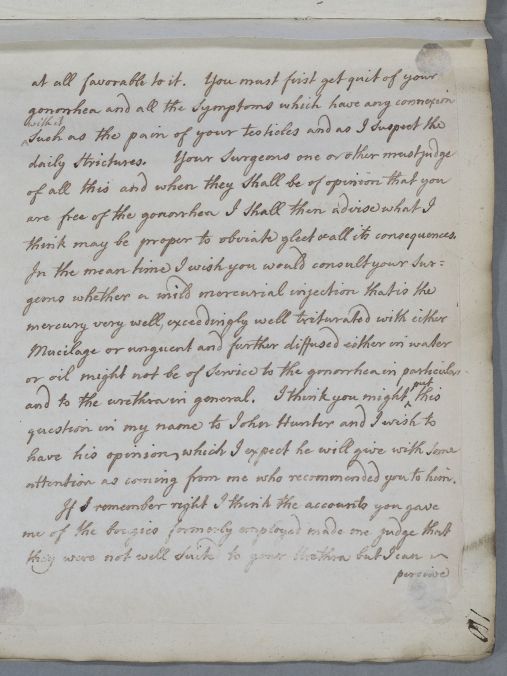 at all favorable to it. You must first get quit of your
gonorrhea and all the Symptoms which have any connexion
with it
Such as the pain of your testicles and as I Suspect the
daily Strictures. Your Surgeons one or other must judge
of all this and when they Shall be of opinion that you
are free of the gonorrhea I Shall then advise what I
think may be proper to obviate gleet & all its consequences.
In the mean time I wish you would consult your Sur=
geons whether a mild mercurial injection that is the
mercury very well, exceedingly well triturated with either
Mucilage or unguent and further diffused either in water
or oil might not be of Service to the gonorrhea in particular
and to the urethra in general. I think you might put this
question in my name to John Hunter and I wish to
have his opinion, which I expect he will give with Some
attention as coming from me who recommended you to him.
If I remember right I think the accounts you gave
me of the bougies formerly employed made me judge that
they were not well Suited to your Urethra but I can
perceive